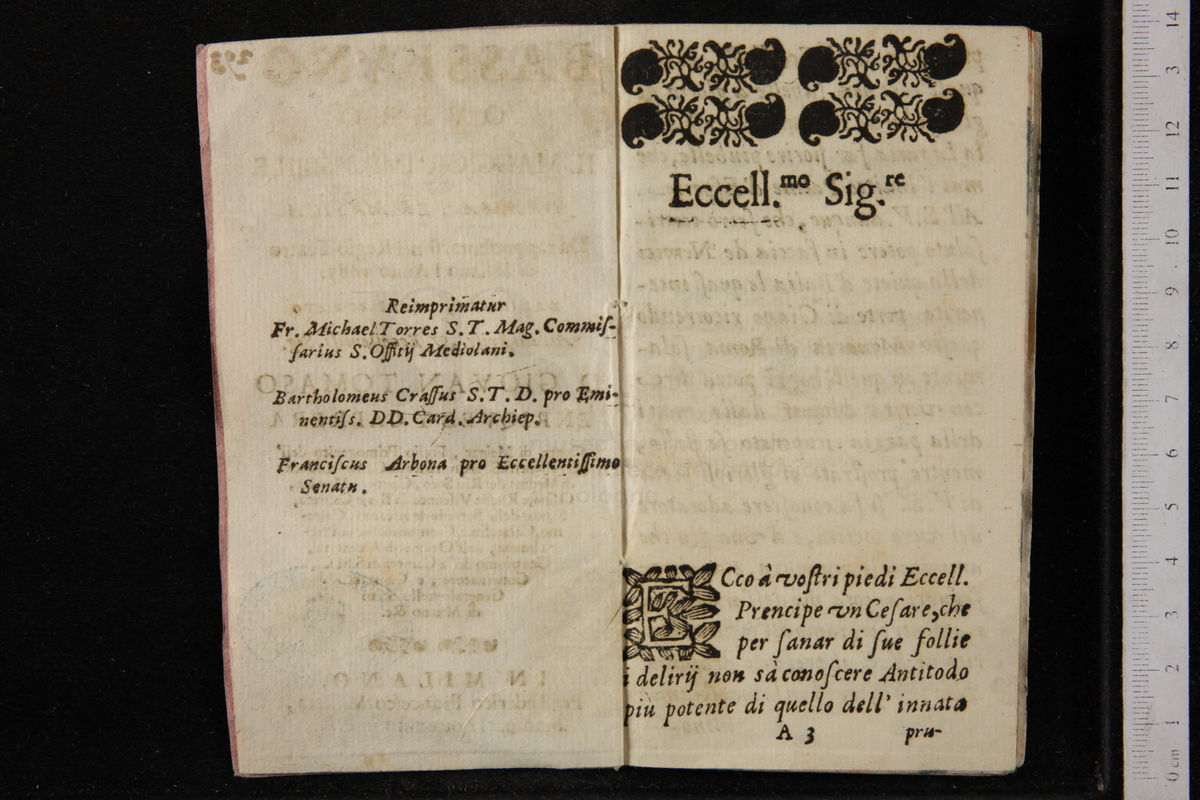 Reimprim̃atur
Fr. Michael Torres S. T. Mag. Commiſ-
ſarius S. Offitij Mediolani.
Bartholomeus Craſſus S. T. D. pro Emi-
nentiſs. DD. Card. Archiep.
Franciſcus Arbona pro Eccellentiſſimo
Senatu.
Eccell.mo Sig.re
ECco à voſtri piedi Eccell.
Prencipe vn Ceſare, che
per ſanar di ſue follie
i delirij non sà conoſcere Antitodo
più potente di quello dell' innata
A 3 pru-
14
3
12
11
10
9
8
7
6
5
4
3
2
1
0 cm